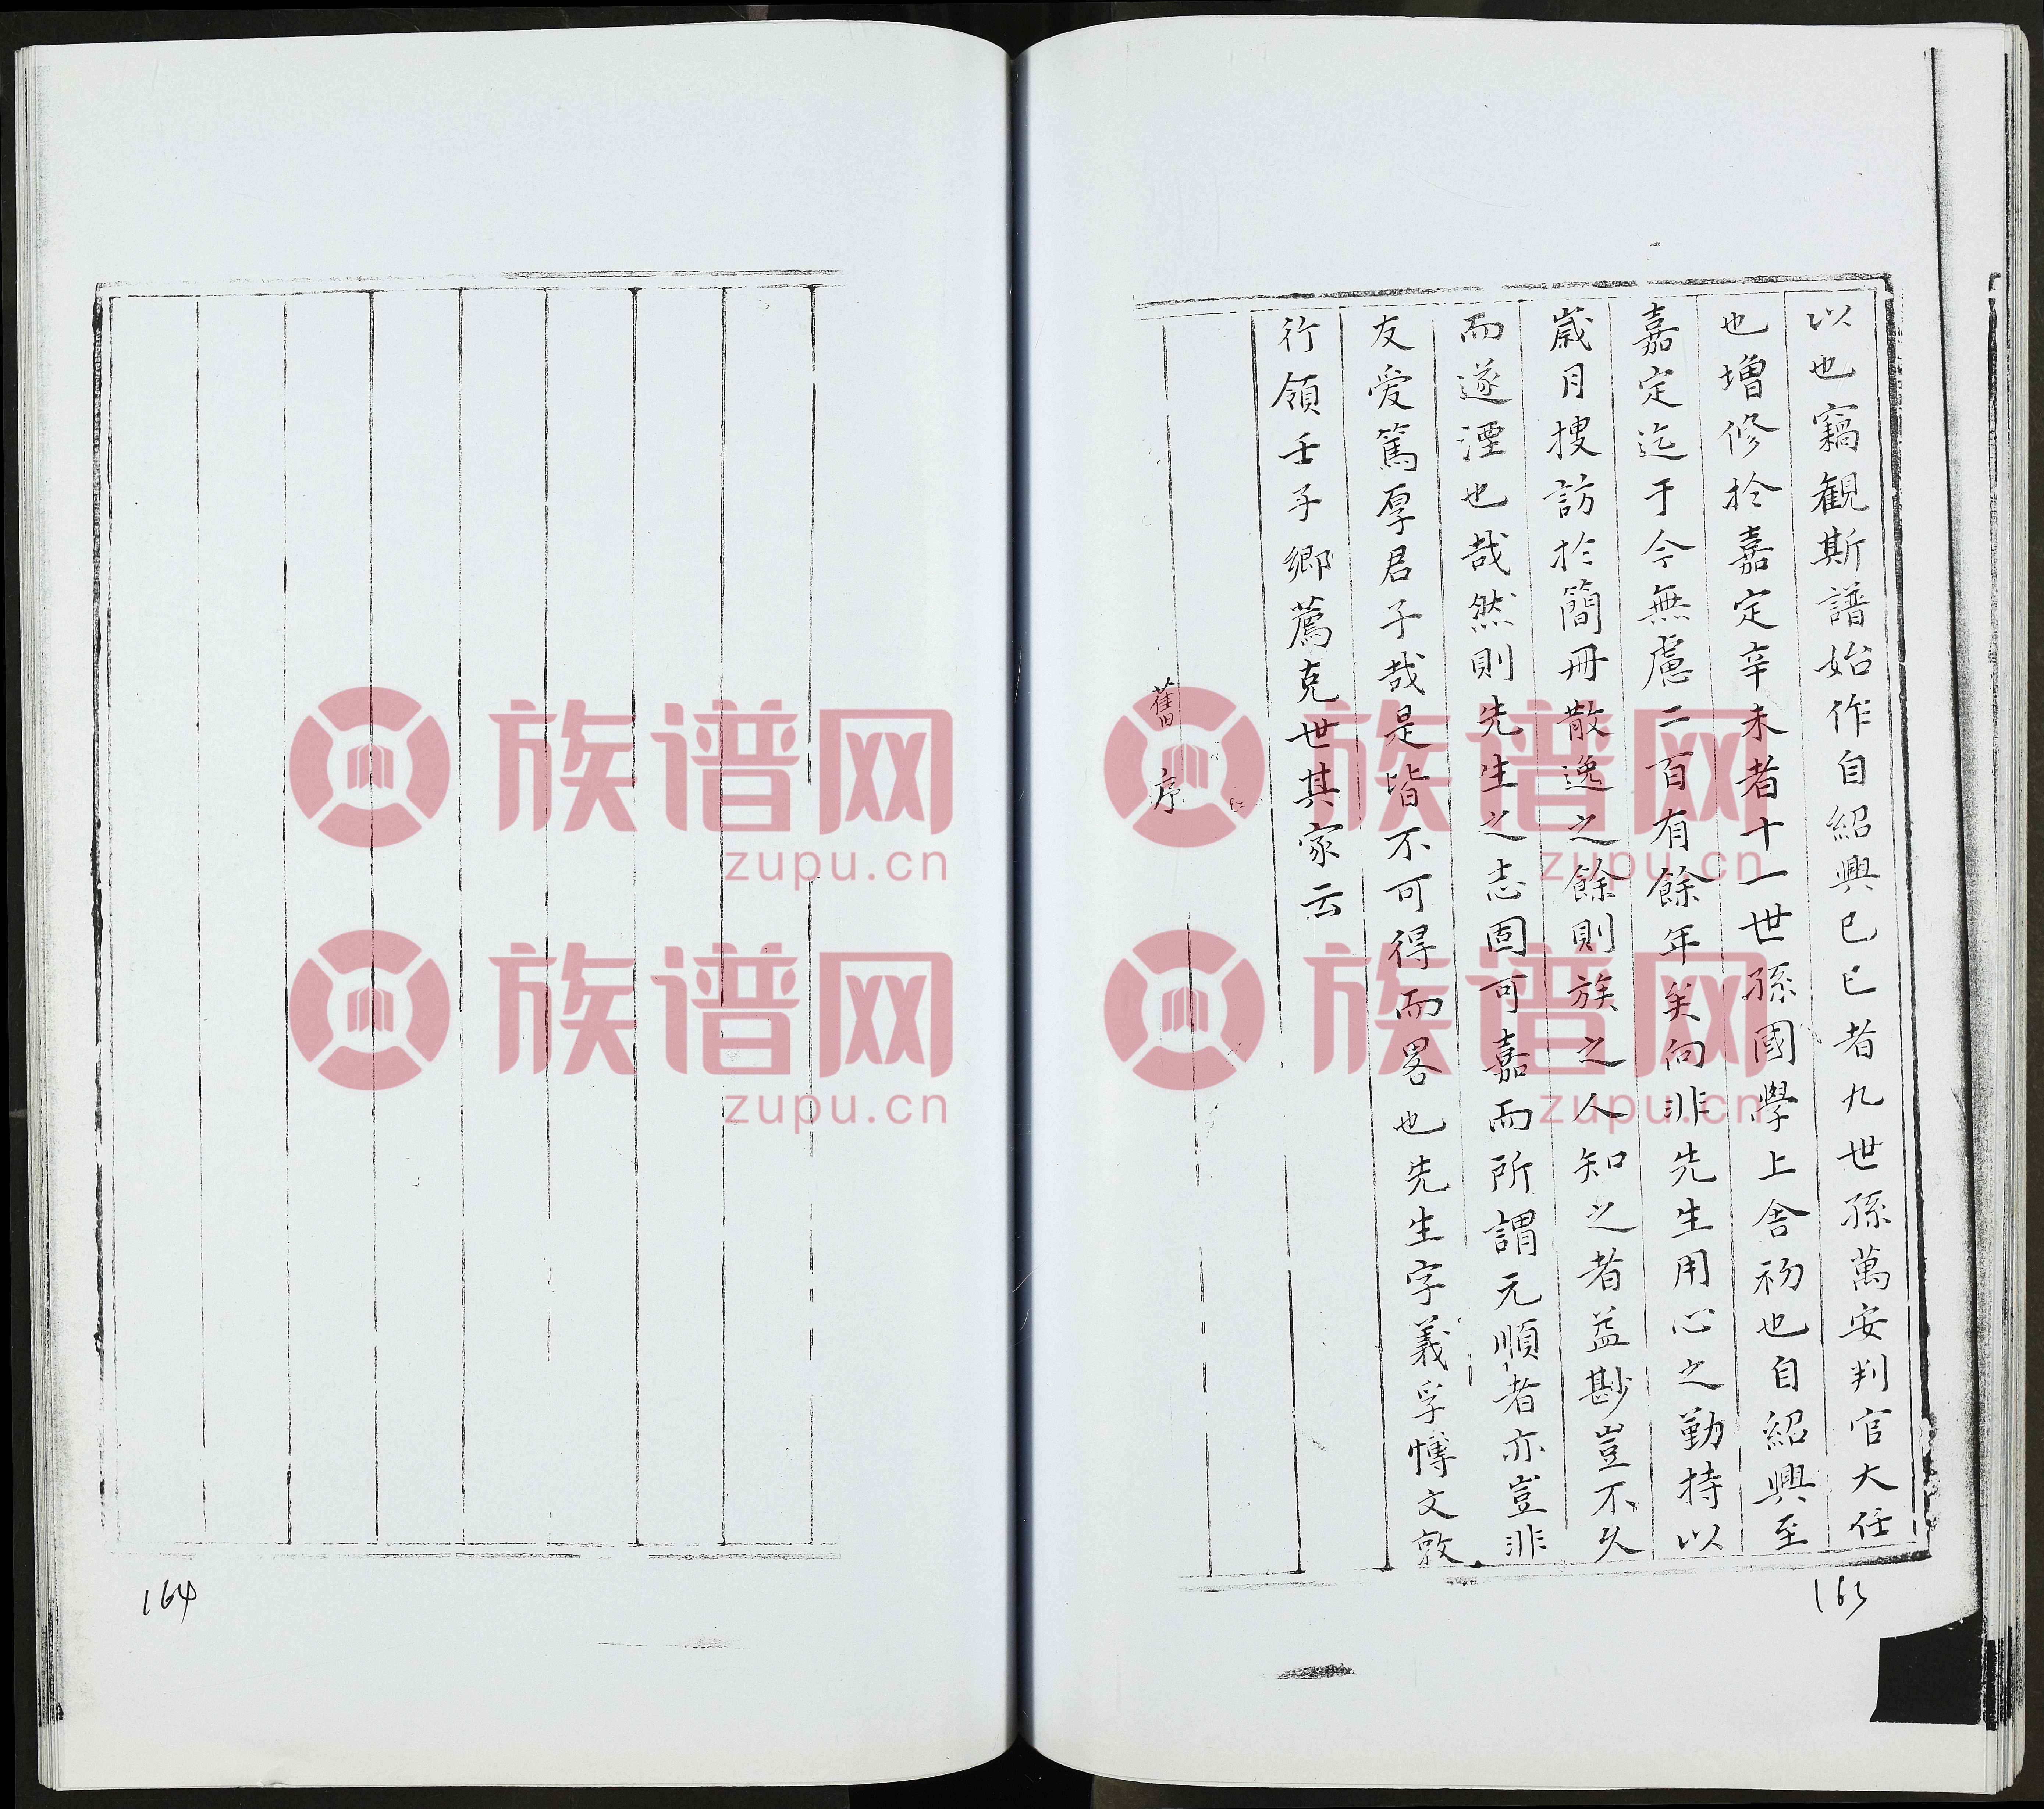 以也竊観斯譜始作自紹興已已者九世孫萬安判官大任
也增修於嘉定辛未者十一世孫國學上舍礽也自紹興至
嘉定迄于今無慮二百有餘年矣向非先生用心之勤持以
歲月搜訪於簡冊散逸之餘則族之人知之者益尠豈不久
而遂湮也哉然則先生之志固可嘉而所謂元順者亦豈非
友爱篤厚君子哉是皆不可得而畧也先生字義孚愽文敦
行領壬子鄉薦克世其家云
舊序
163
164
族谱网
zupu.cn
族谱网
zupu.cn
族谱网
zupu.cn
族谱网
zupu.cn